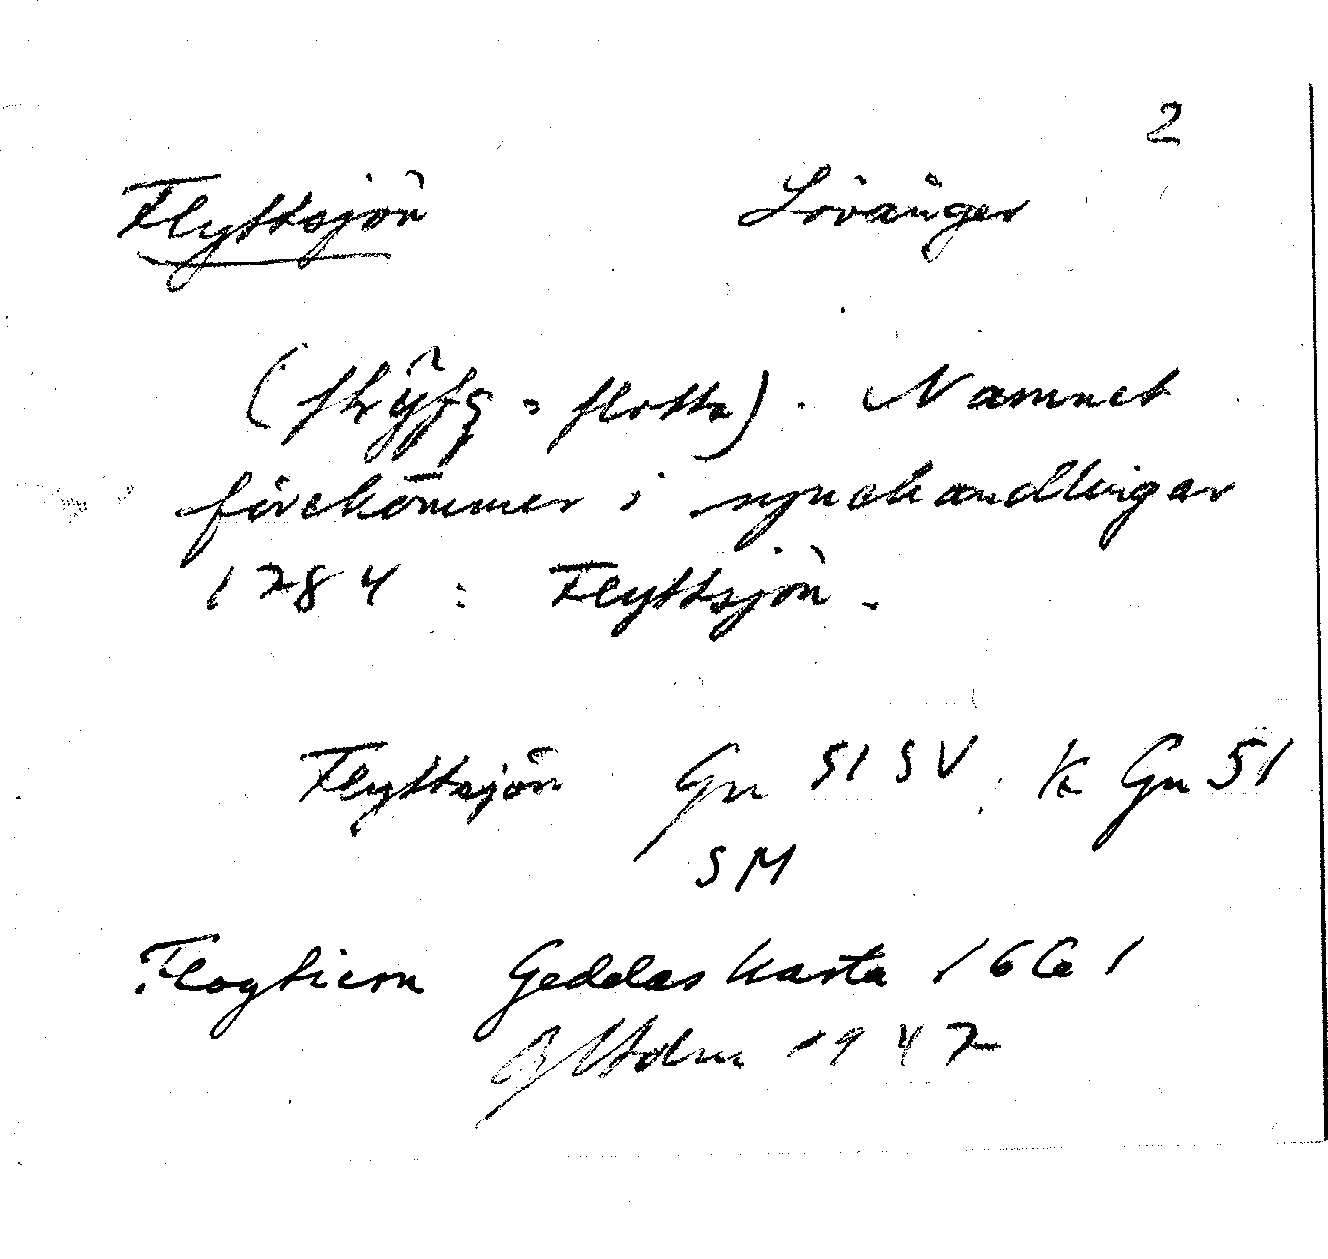 2
Flyttsjön Lövånger
= flotte). Namnet
förekommer i synehandlingar
1784: Flyttsjön.
Flyttsjön Gn 51 SV. k Gn 51
SM
Floytiern Geddas karta 1661
Holm 1947